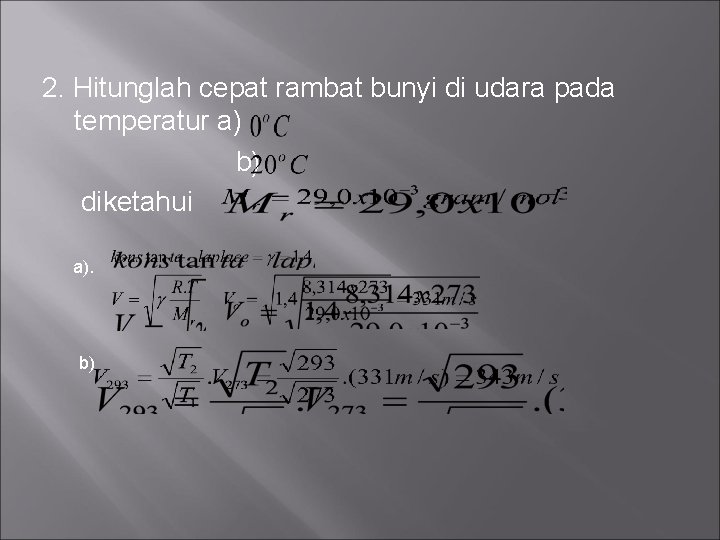 2. Hitunglah cepat rambat bunyi di udara pada
temperatur a) 0°C
b) 20°C
diketahui M_r = 29,0x10^{-3} gram / mol
a). konstanta laplace = γ = 1,4
V = √(γ R.T / M_r) V_o = √(1,4 8,314x273 / 29,0x10^{-3}) = 331m / s
b) V_{293} = √T_2 / √T_1 .V_{273} = √293 / √273 .(331m / s) = 343m / s